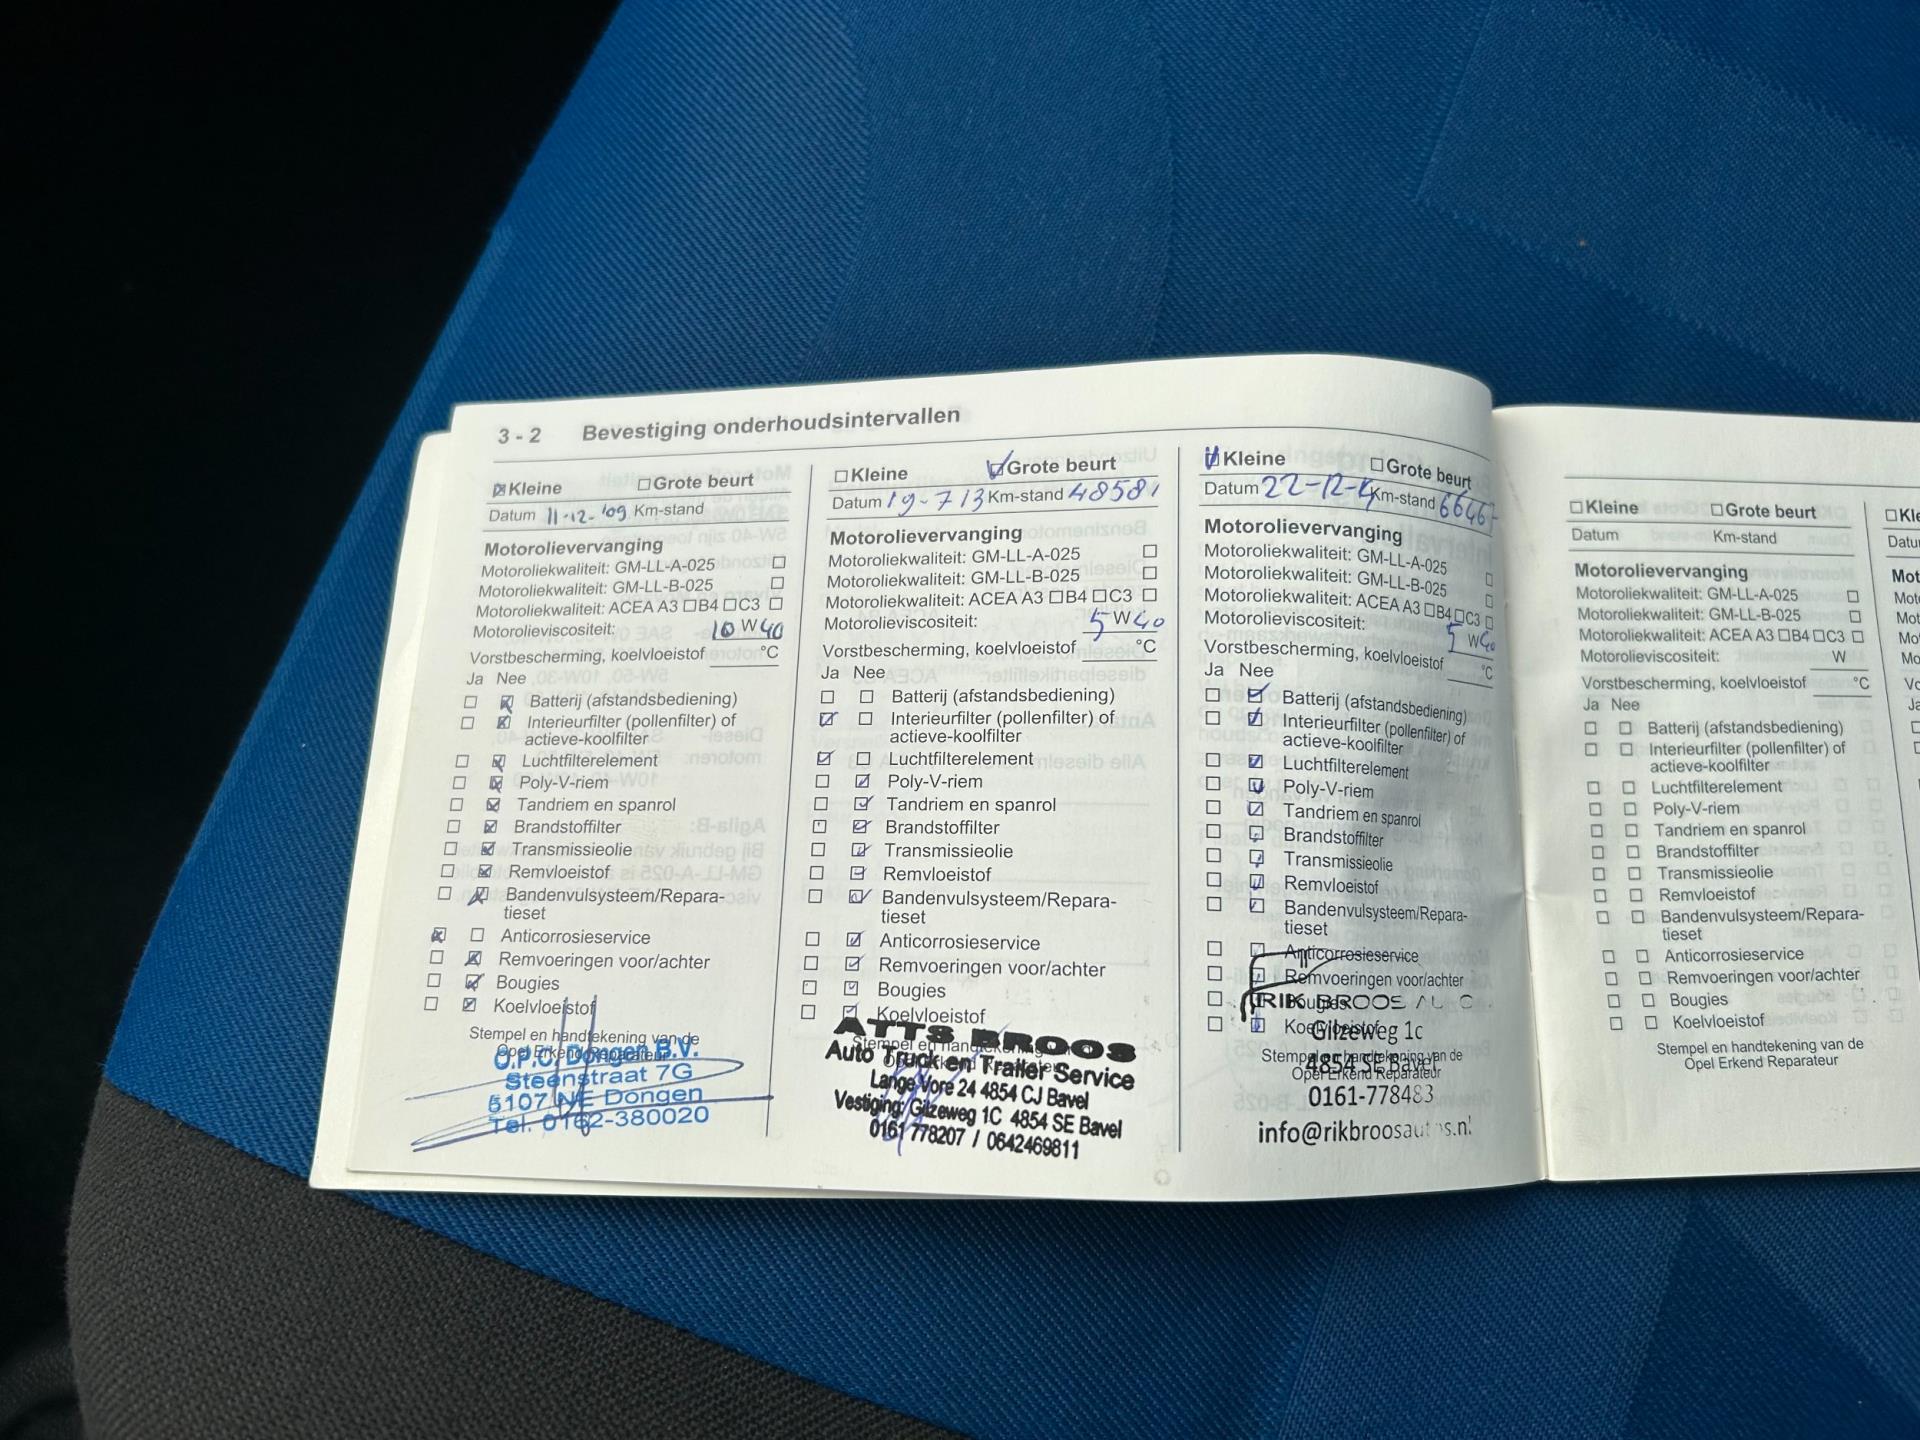 3 - 2 Bevestiging onderhoudsintervallen
Kleine Grote beurt
Datum 11-12-'09 Km-stand
Motorolievervanging
Motoroliekwaliteit: GM-LL-A-025
Motoroliekwaliteit: GM-LL-B-025
Motoroliekwaliteit: ACEA A3 B4 C3
Motorolieviscositeit: 10 W 40
Vorstbescherming, koelvloeistof °C
Ja Nee
Batterij (afstandsbediening)
Interieurfilter (pollenfilter) of
actieve-koolfilter
Luchtfilterelement
Poly-V-riem
Tandriem en spanrol
Brandstoffilter
Transmissieolie
Remvloeistof
Bandenvulsysteem/Repara-
tieset
Anticorrosieservice
Remvoeringen voor/achter
Bougies
Koelvloeistof
Stempel en handtekening van de
Opel Erkend Reparateur
O.P.C. Dongen B.V.
Steenstraat 7G
5107 NE Dongen
Tel. 0162-380020
Kleine Grote beurt
Datum 19-7-13 Km-stand 48581
Motorolievervanging
Motoroliekwaliteit: GM-LL-A-025
Motoroliekwaliteit: GM-LL-B-025
Motoroliekwaliteit: ACEA A3 B4 C3
Motorolieviscositeit: 5 W 40
Vorstbescherming, koelvloeistof °C
Ja Nee
Batterij (afstandsbediening)
Interieurfilter (pollenfilter) of
actieve-koolfilter
Luchtfilterelement
Poly-V-riem
Tandriem en spanrol
Brandstoffilter
Transmissieolie
Remvloeistof
Bandenvulsysteem/Repara-
tieset
Anticorrosieservice
Remvoeringen voor/achter
Bougies
Koelvloeistof
Stempel en handtekening van de
Opel Erkend Reparateur
ATTS BROOS
Auto Truck en Trailer Service
Lange Vore 24 4854 CJ Bavel
Vestiging: Gilzeweg 1C 4854 SE Bavel
0161 778207 / 0642469811
Kleine Grote beurt
Datum Km-stand
Motorolievervanging
Motoroliekwaliteit: GM-LL-A-025
Motoroliekwaliteit: GM-LL-B-025
Motoroliekwaliteit: ACEA A3 B4 C3
Motorolieviscositeit: 5 W 40
Vorstbescherming, koelvloeistof °C
Ja Nee
Batterij (afstandsbediening)
Interieurfilter (pollenfilter) of
actieve-koolfilter
Luchtfilterelement
Poly-V-riem
Tandriem en spanrol
Brandstoffilter
Transmissieolie
Remvloeistof
Bandenvulsysteem/Repara-
tieset
Anticorrosieservice
Remvoeringen voor/achter
Bougies
Koelvloeistof
Stempel en handtekening van de
Opel Erkend Reparateur
RIK BROOS
Gilzeweg 1c
4854 SE Bavel
0161-778483
info@rikbroosautos.nl
Kleine Grote beurt
Datum Km-stand
Motorolievervanging
Motoroliekwaliteit: GM-LL-A-025
Motoroliekwaliteit: GM-LL-B-025
Motoroliekwaliteit: ACEA A3 B4 C3
Motorolieviscositeit: W
Vorstbescherming, koelvloeistof °C
Ja Nee
Batterij (afstandsbediening)
Interieurfilter (pollenfilter) of
actieve-koolfilter
Luchtfilterelement
Poly-V-riem
Tandriem en spanrol
Brandstoffilter
Transmissieolie
Remvloeistof
Bandenvulsysteem/Repara-
tieset
Anticorrosieservice
Remvoeringen voor/achter
Bougies
Koelvloeistof
Stempel en handtekening van de
Opel Erkend Reparateur